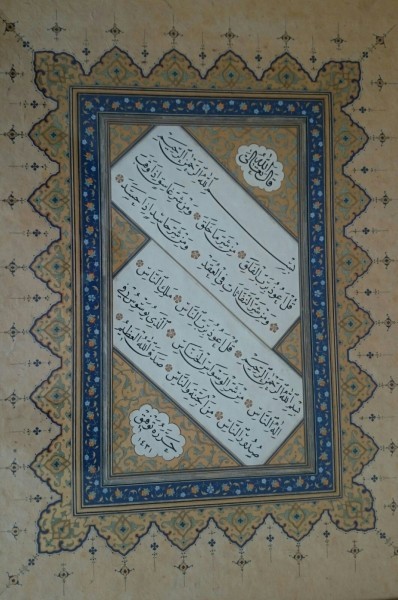 قال الله تعالى
بسم الله الرحمن الرحيم
قل أعوذ برب الفلق من شر ما خلق ومن شر غاسق إذا وقب
ومن شر النفاثات في العقد ومن شر حاسد إذا حسد
بسم الله الرحمن الرحيم قل أعوذ برب الناس ملك الناس
إله الناس من شر الوسواس الخناس الذي يوسوس في
صدور الناس من الجنة والناس صدق الله العظيم
حرره